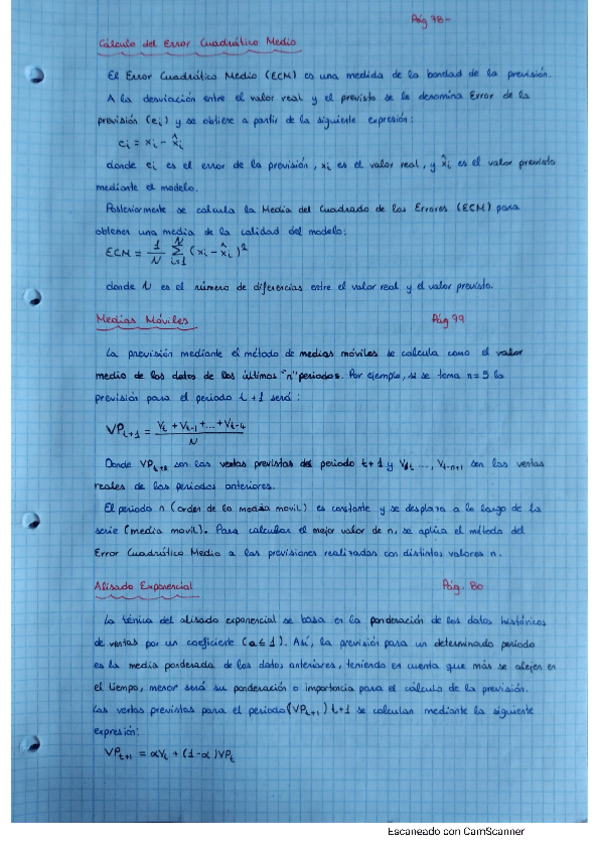 Pág 78-
Cálculo del Error Cuadrático Medio
El Error Cuadrático Medio (ECM) es una medida de la bondad de la previsión.
A la desviación entre el valor real y el previsto se le denomina Error de la
previsión (ei) y se obtiene a partir de la siguiente expresión:
ei = xi - x̂i
donde ei es el error de la previsión, xi es el valor real, y x̂i es el valor previsto
mediante el modelo.
Posteriormente se calcula la Media del Cuadrado de los Errores (ECM) para
obtener una media de la calidad del modelo:
ECM = 1/N Σ i=1 N (xi - x̂i)²
donde N es el número de diferencias entre el valor real y el valor previsto.
Medias Móviles Pág 79
La previsión mediante el método de medias móviles se calcula como el valor
medio de los datos de los últimos "n" periodos. Por ejemplo, si se toma n=5 la
previsión para el periodo t+1 será:
VPt+1 = Vt + Vt-1 + ... + Vt-4 / N
Donde VPt+1 son las ventas previstas del periodo t+1 y Vt ..., Vt-n+1 son las ventas
reales de los periodos anteriores.
El periodo n (orden de la media movil) es constante y se desplaza a lo largo de la
serie (media movil). Para calcular el mejor valor de n, se aplica el método del
Error Cuadrático Medio a las previsiones realizadas con distintos valores n.
Alisado Exponencial Pág. 80
La técnica del alisado exponencial se basa en la ponderación de los datos históricos
de ventas por un coeficiente (α≤1). Así, la previsión para un determinado periodo
es la media ponderada de los datos anteriores, teniendo en cuenta que más se alejen en
el tiempo, menor será su ponderación o importancia para el cálculo de la previsión.
Las ventas previstas para el periodo (VPt+1) t+1 se calculan mediante la siguiente
expresión:
VPt+1 = αVt + (1-α)VPt
Escaneado con CamScanner